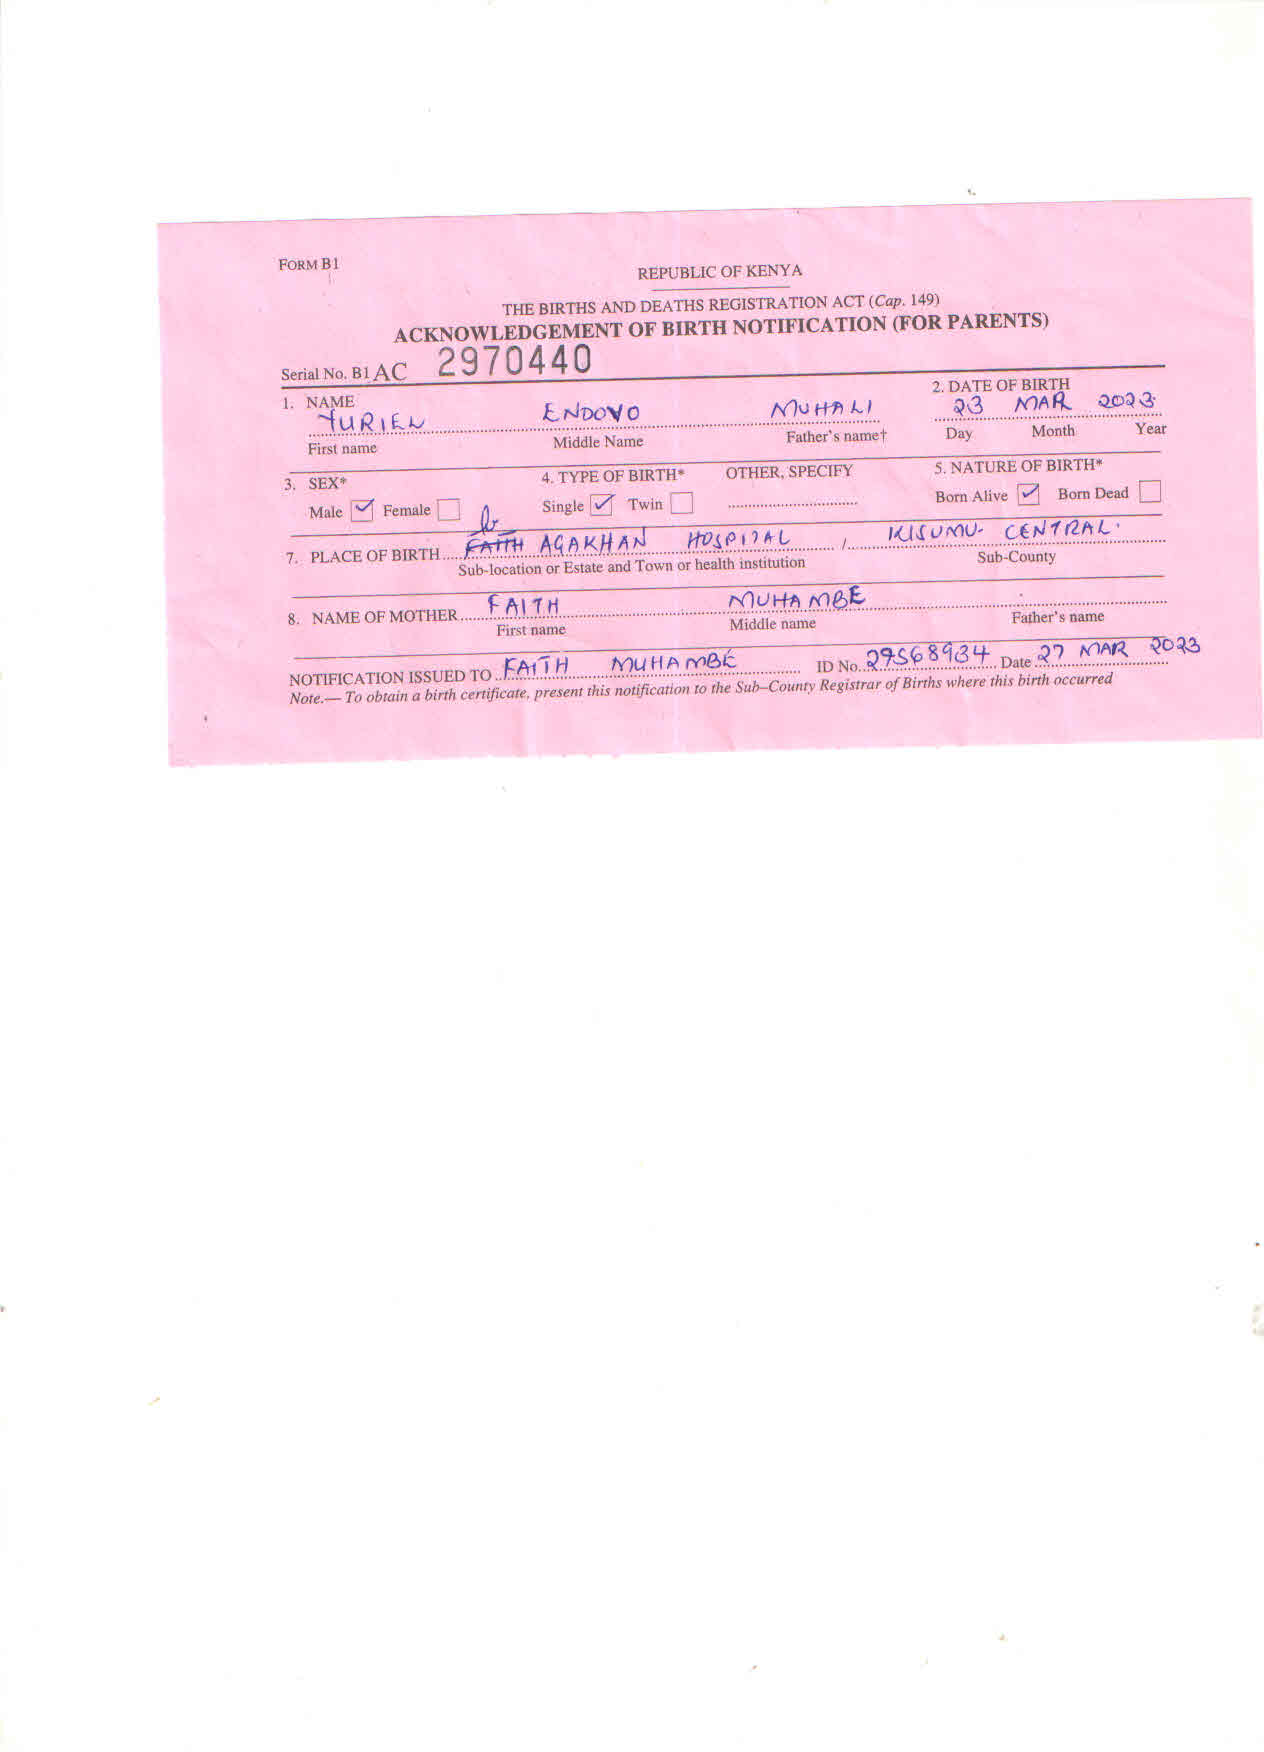 FORM B1
REPUBLIC OF KENYA
THE BIRTHS AND DEATHS REGISTRATION ACT (Cap. 149)
ACKNOWLEDGEMENT OF BIRTH NOTIFICATION (FOR PARENTS)
Serial No. B1 AC 2970440
1. NAME 2. DATE OF BIRTH
ENDOVO MUHALI 23 MAR 2023
First name Middle Name Father's name† Day Month Year
3. SEX* 4. TYPE OF BIRTH* OTHER, SPECIFY 5. NATURE OF BIRTH*
Male Female Single Twin Born Alive Born Dead
7. PLACE OF BIRTH FAITH AGAKHAN HOSPITAL / KISUMU- CENTRAL.
Sub-location or Estate and Town or health institution Sub-County
8. NAME OF MOTHER FAITH MUHAMBE
First name Middle name Father's name
NOTIFICATION ISSUED TO FAITH MUHAMBE ID No. 29568934 Date 27 MAR 2023
Note.— To obtain a birth certificate, present this notification to the Sub–County Registrar of Births where this birth occurred